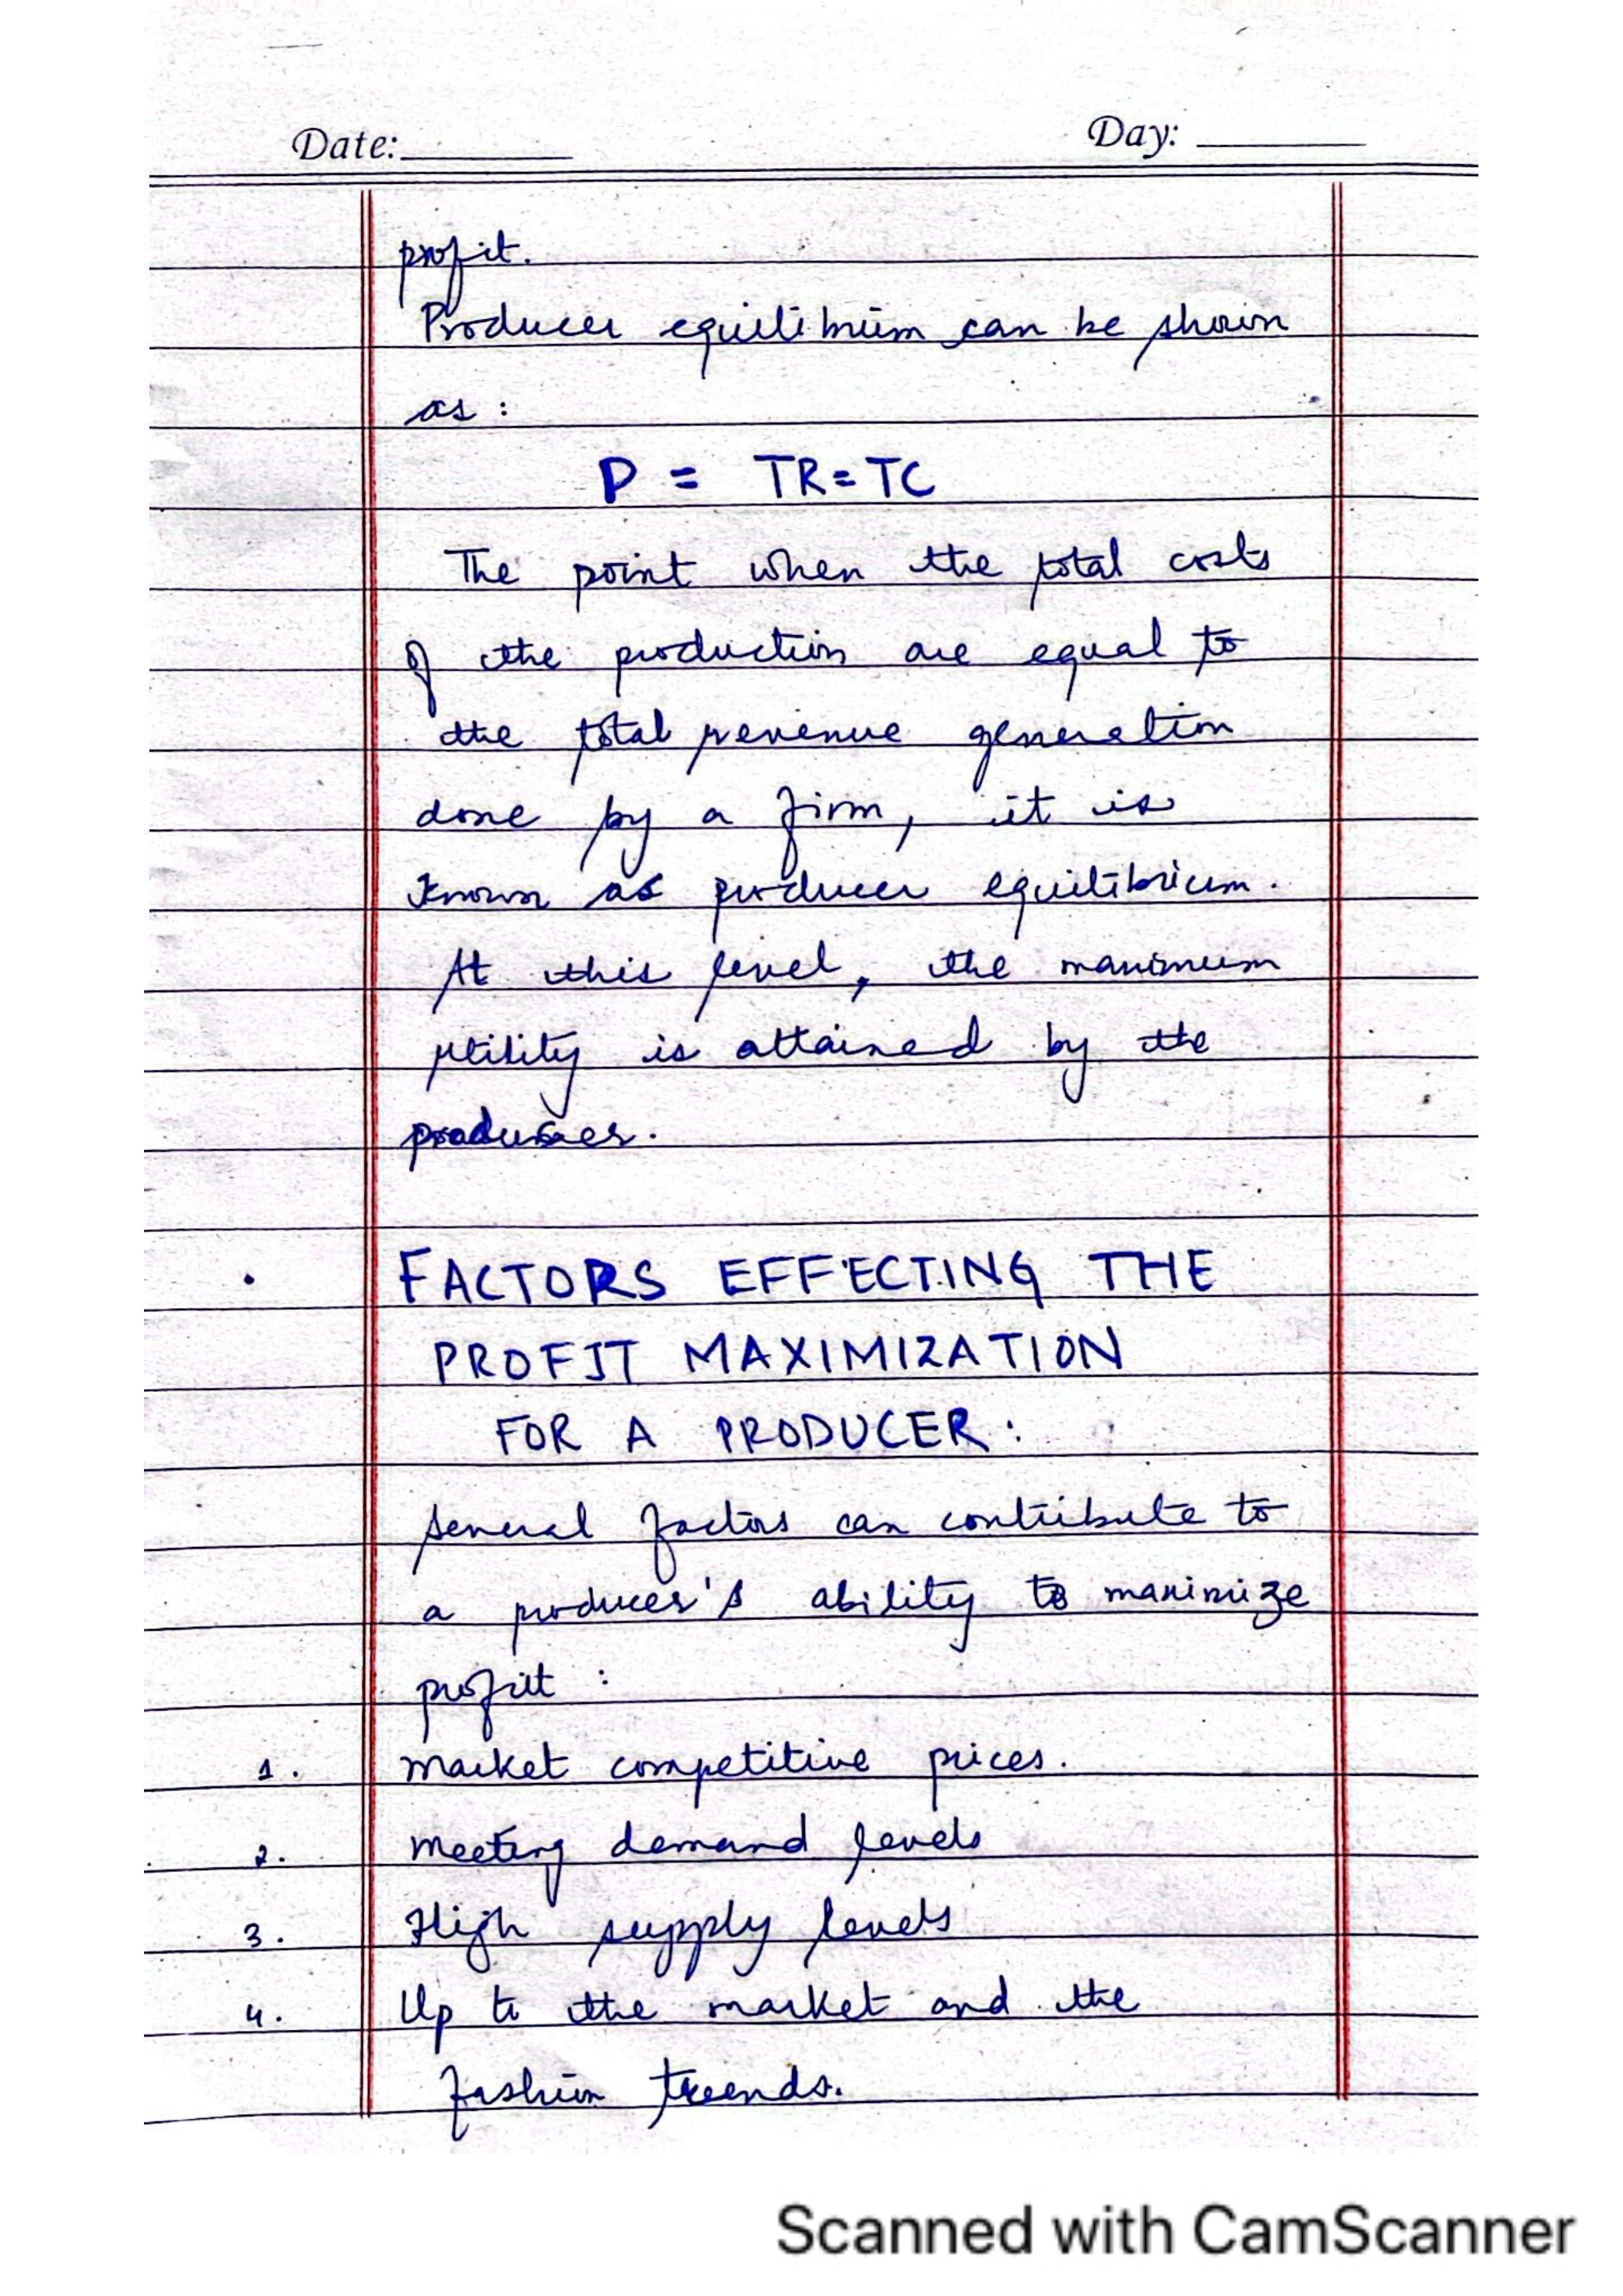 Date: Day:
profit.
Producer equilibrium can be shown
as :
P = TR=TC
The point when the total costs
of the production are equal to
the total revenue generation
done by a firm, it is
known as producer equilibrium.
At this level, the maximum
utility is attained by the
producer.
• FACTORS EFFECTING THE
PROFIT MAXIMIZATION
FOR A PRODUCER :
several factors can contribute to
a producer's ability to maximize
profit :
1. market competitive prices.
2. meeting demand levels
3. High supply levels
4. Up to the market and the
fashion trends.
Scanned with CamScanner